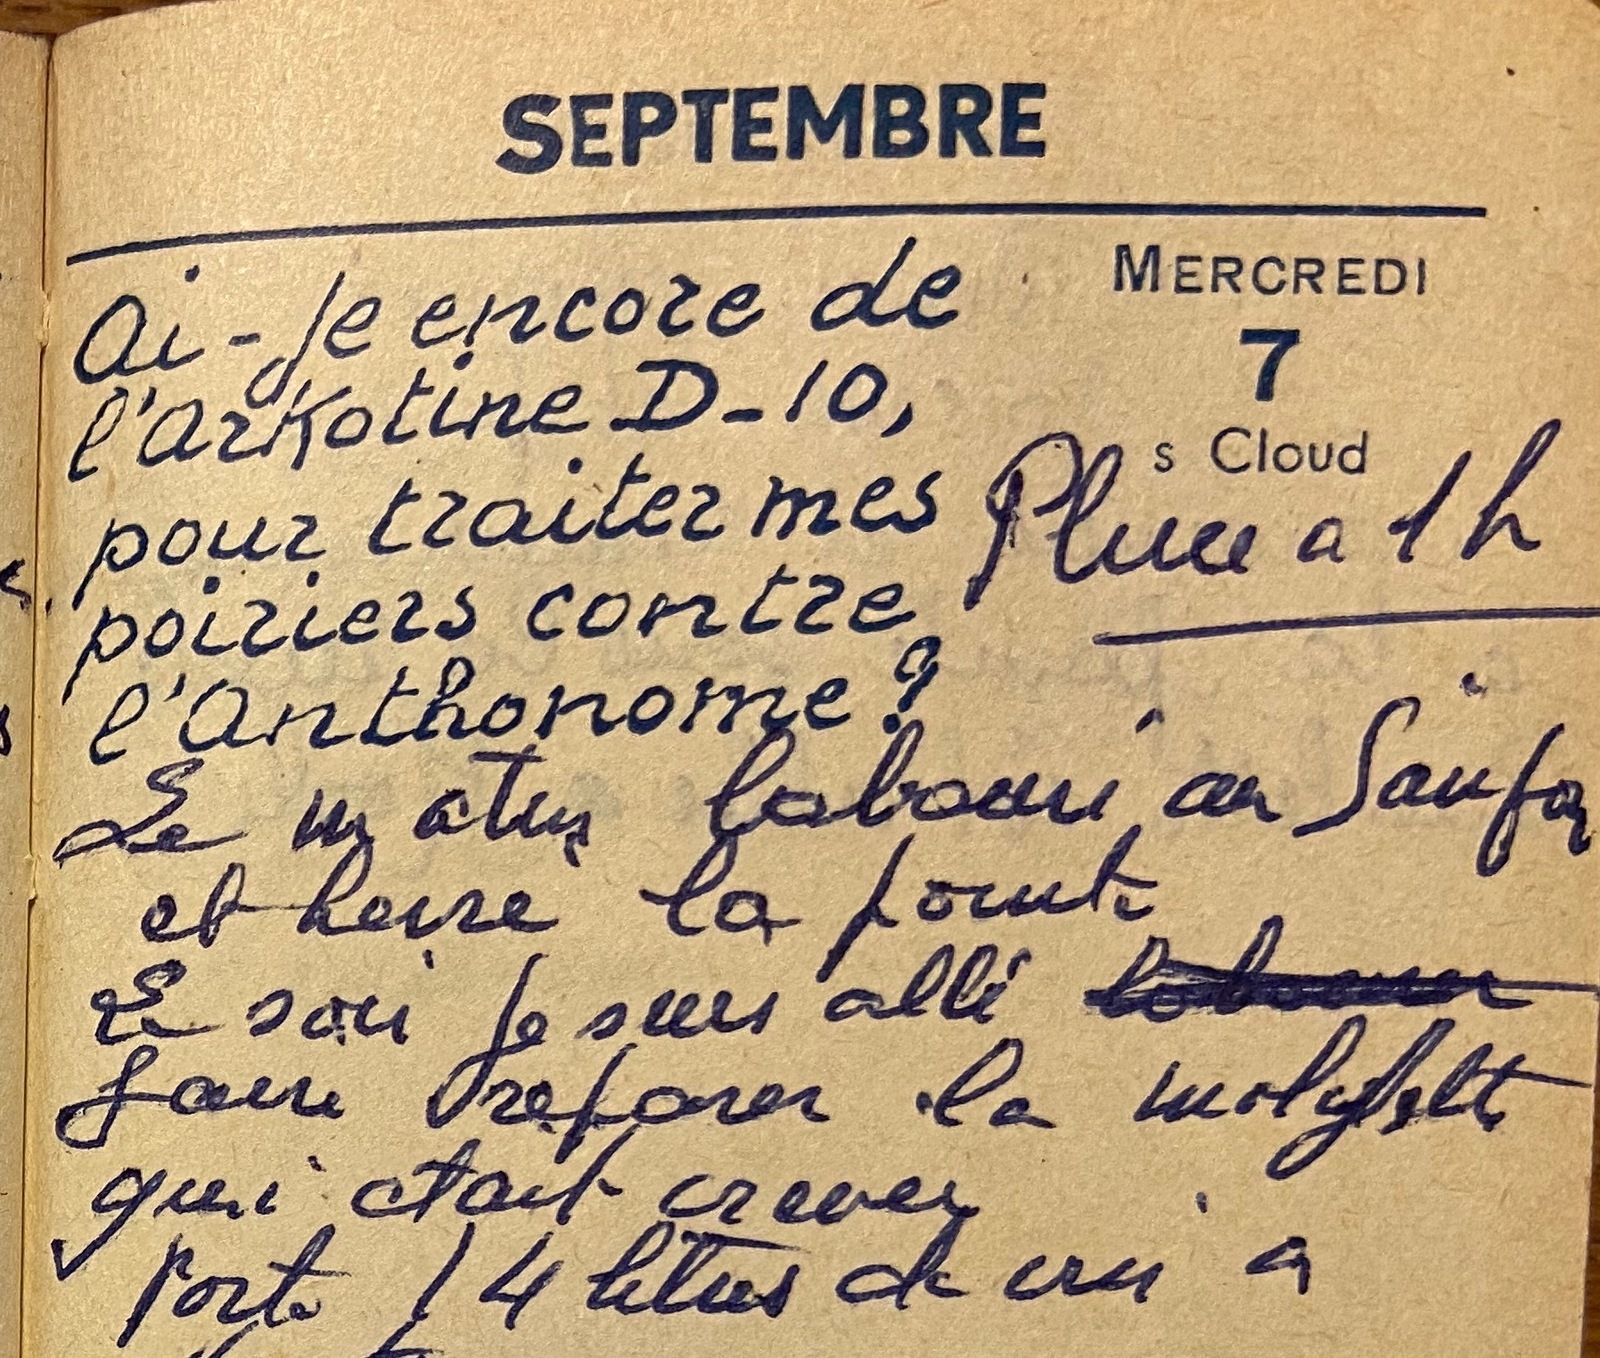 SEPTEMBRE
MERCREDI
7
s Cloud
Pluie a 1 h
Ai-je encore de
l'Arkotine D-10,
pour traiter mes
poiriers contre
l'Anthonome?
Le matin labouri au Sainfoin
et herse la pointe
Le soir je suis allé
faire reparer la mobylette
qui etait crever
Porte 14 litres de vin a